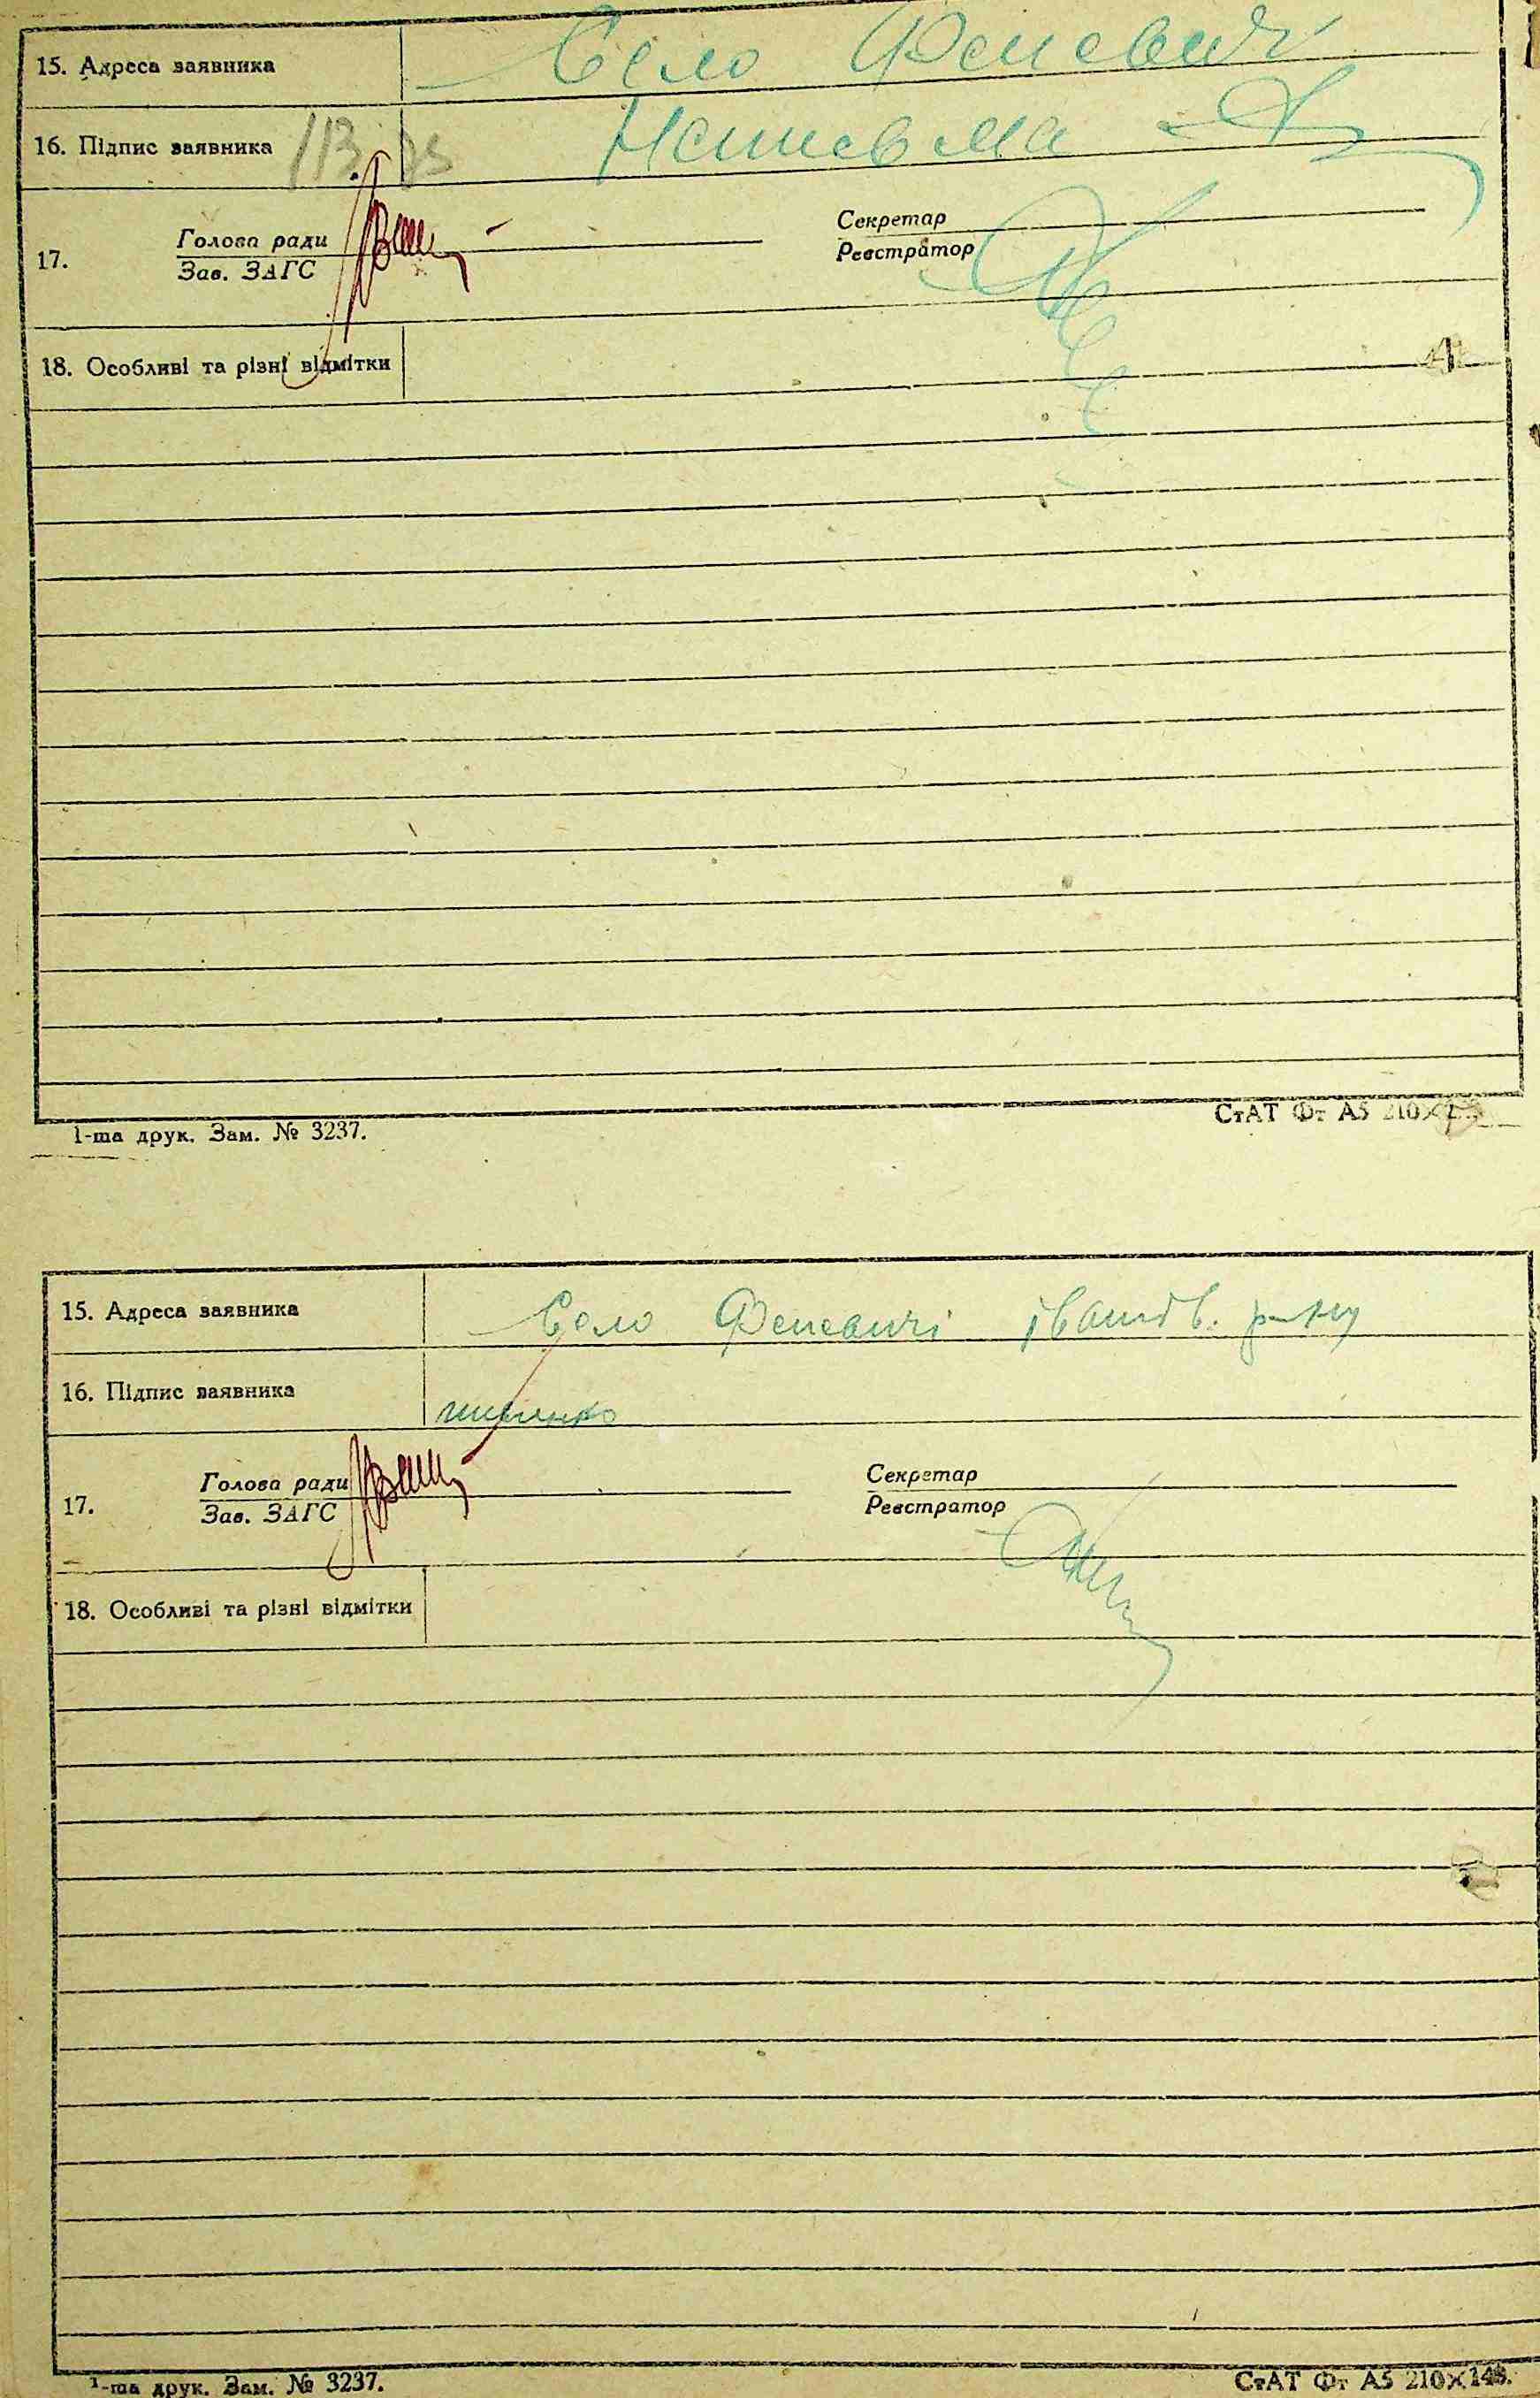 15. Адреса заявника Село Феневичі
16. Підпис заявника 113
17. Голова ради Секретар
Зав. ЗАГС Реєстратор
18. Особливі та різні відмітки
1-ша друк. Зам. № 3237. СтАТ Фт А5 210×
15. Адреса заявника Село Феневичі іванків. р-ну
16. Підпис заявника
17. Голова ради Секретар
Зав. ЗАГС Реєстратор
18. Особливі та різні відмітки
1-ша друк. Зам. № 3237. СтАТ Фт А5 210×148.